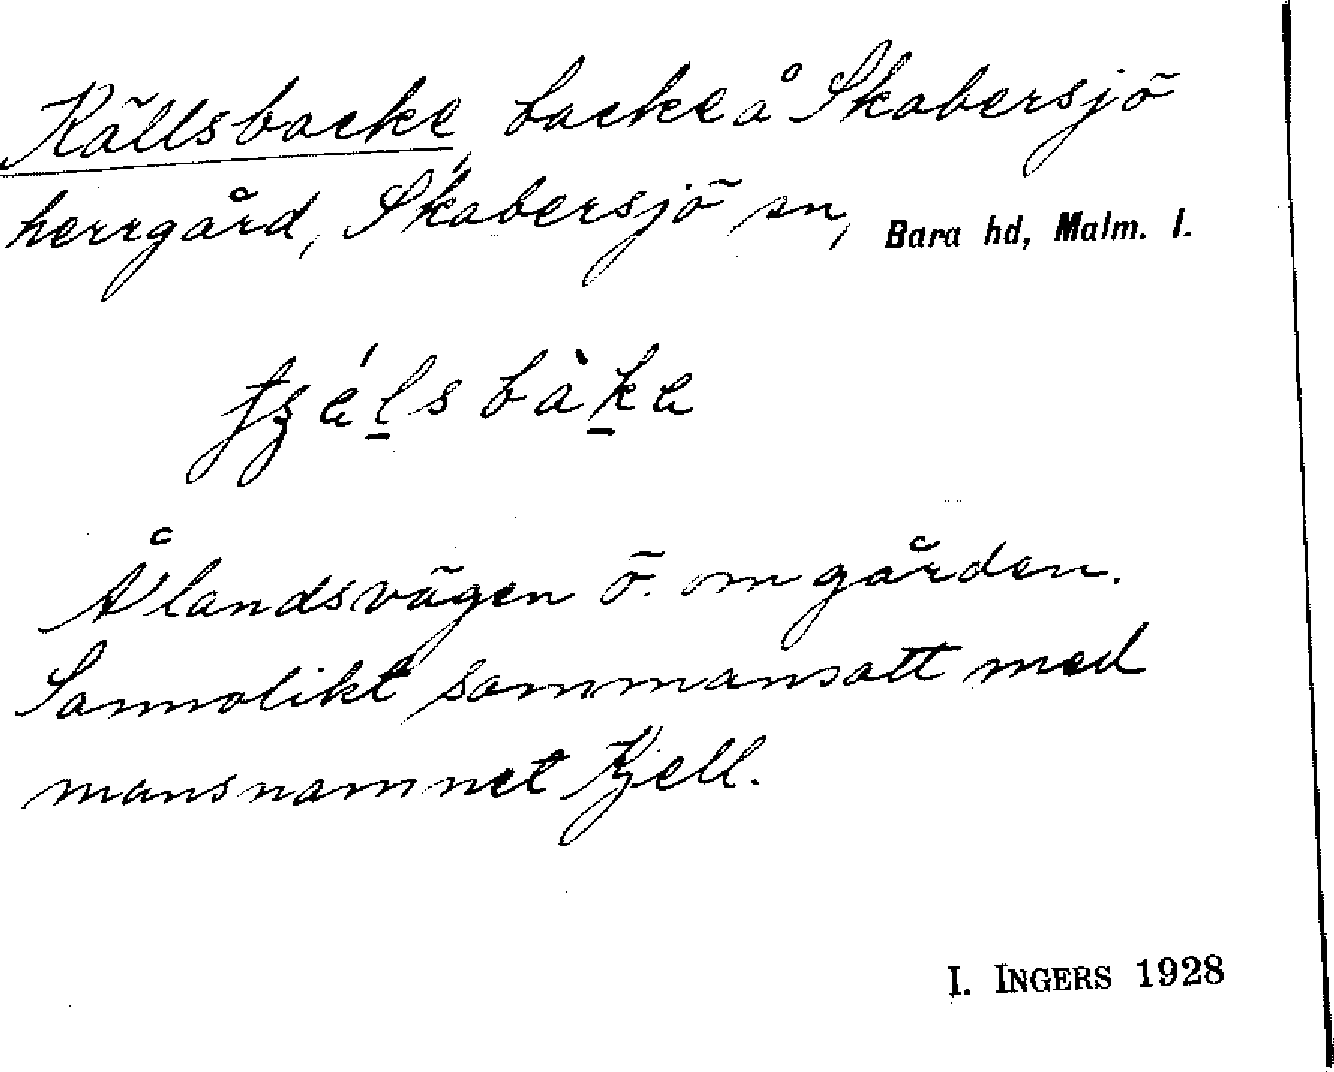 Källsbacke backe å Skabersjö
herrgård, Skabersjö sn, Bara hd, Malm. l.
Å landsvägen ö. om gården.
Sannolikt sammansatt med
mansnamnet Kjell.
I. INGERS 1928